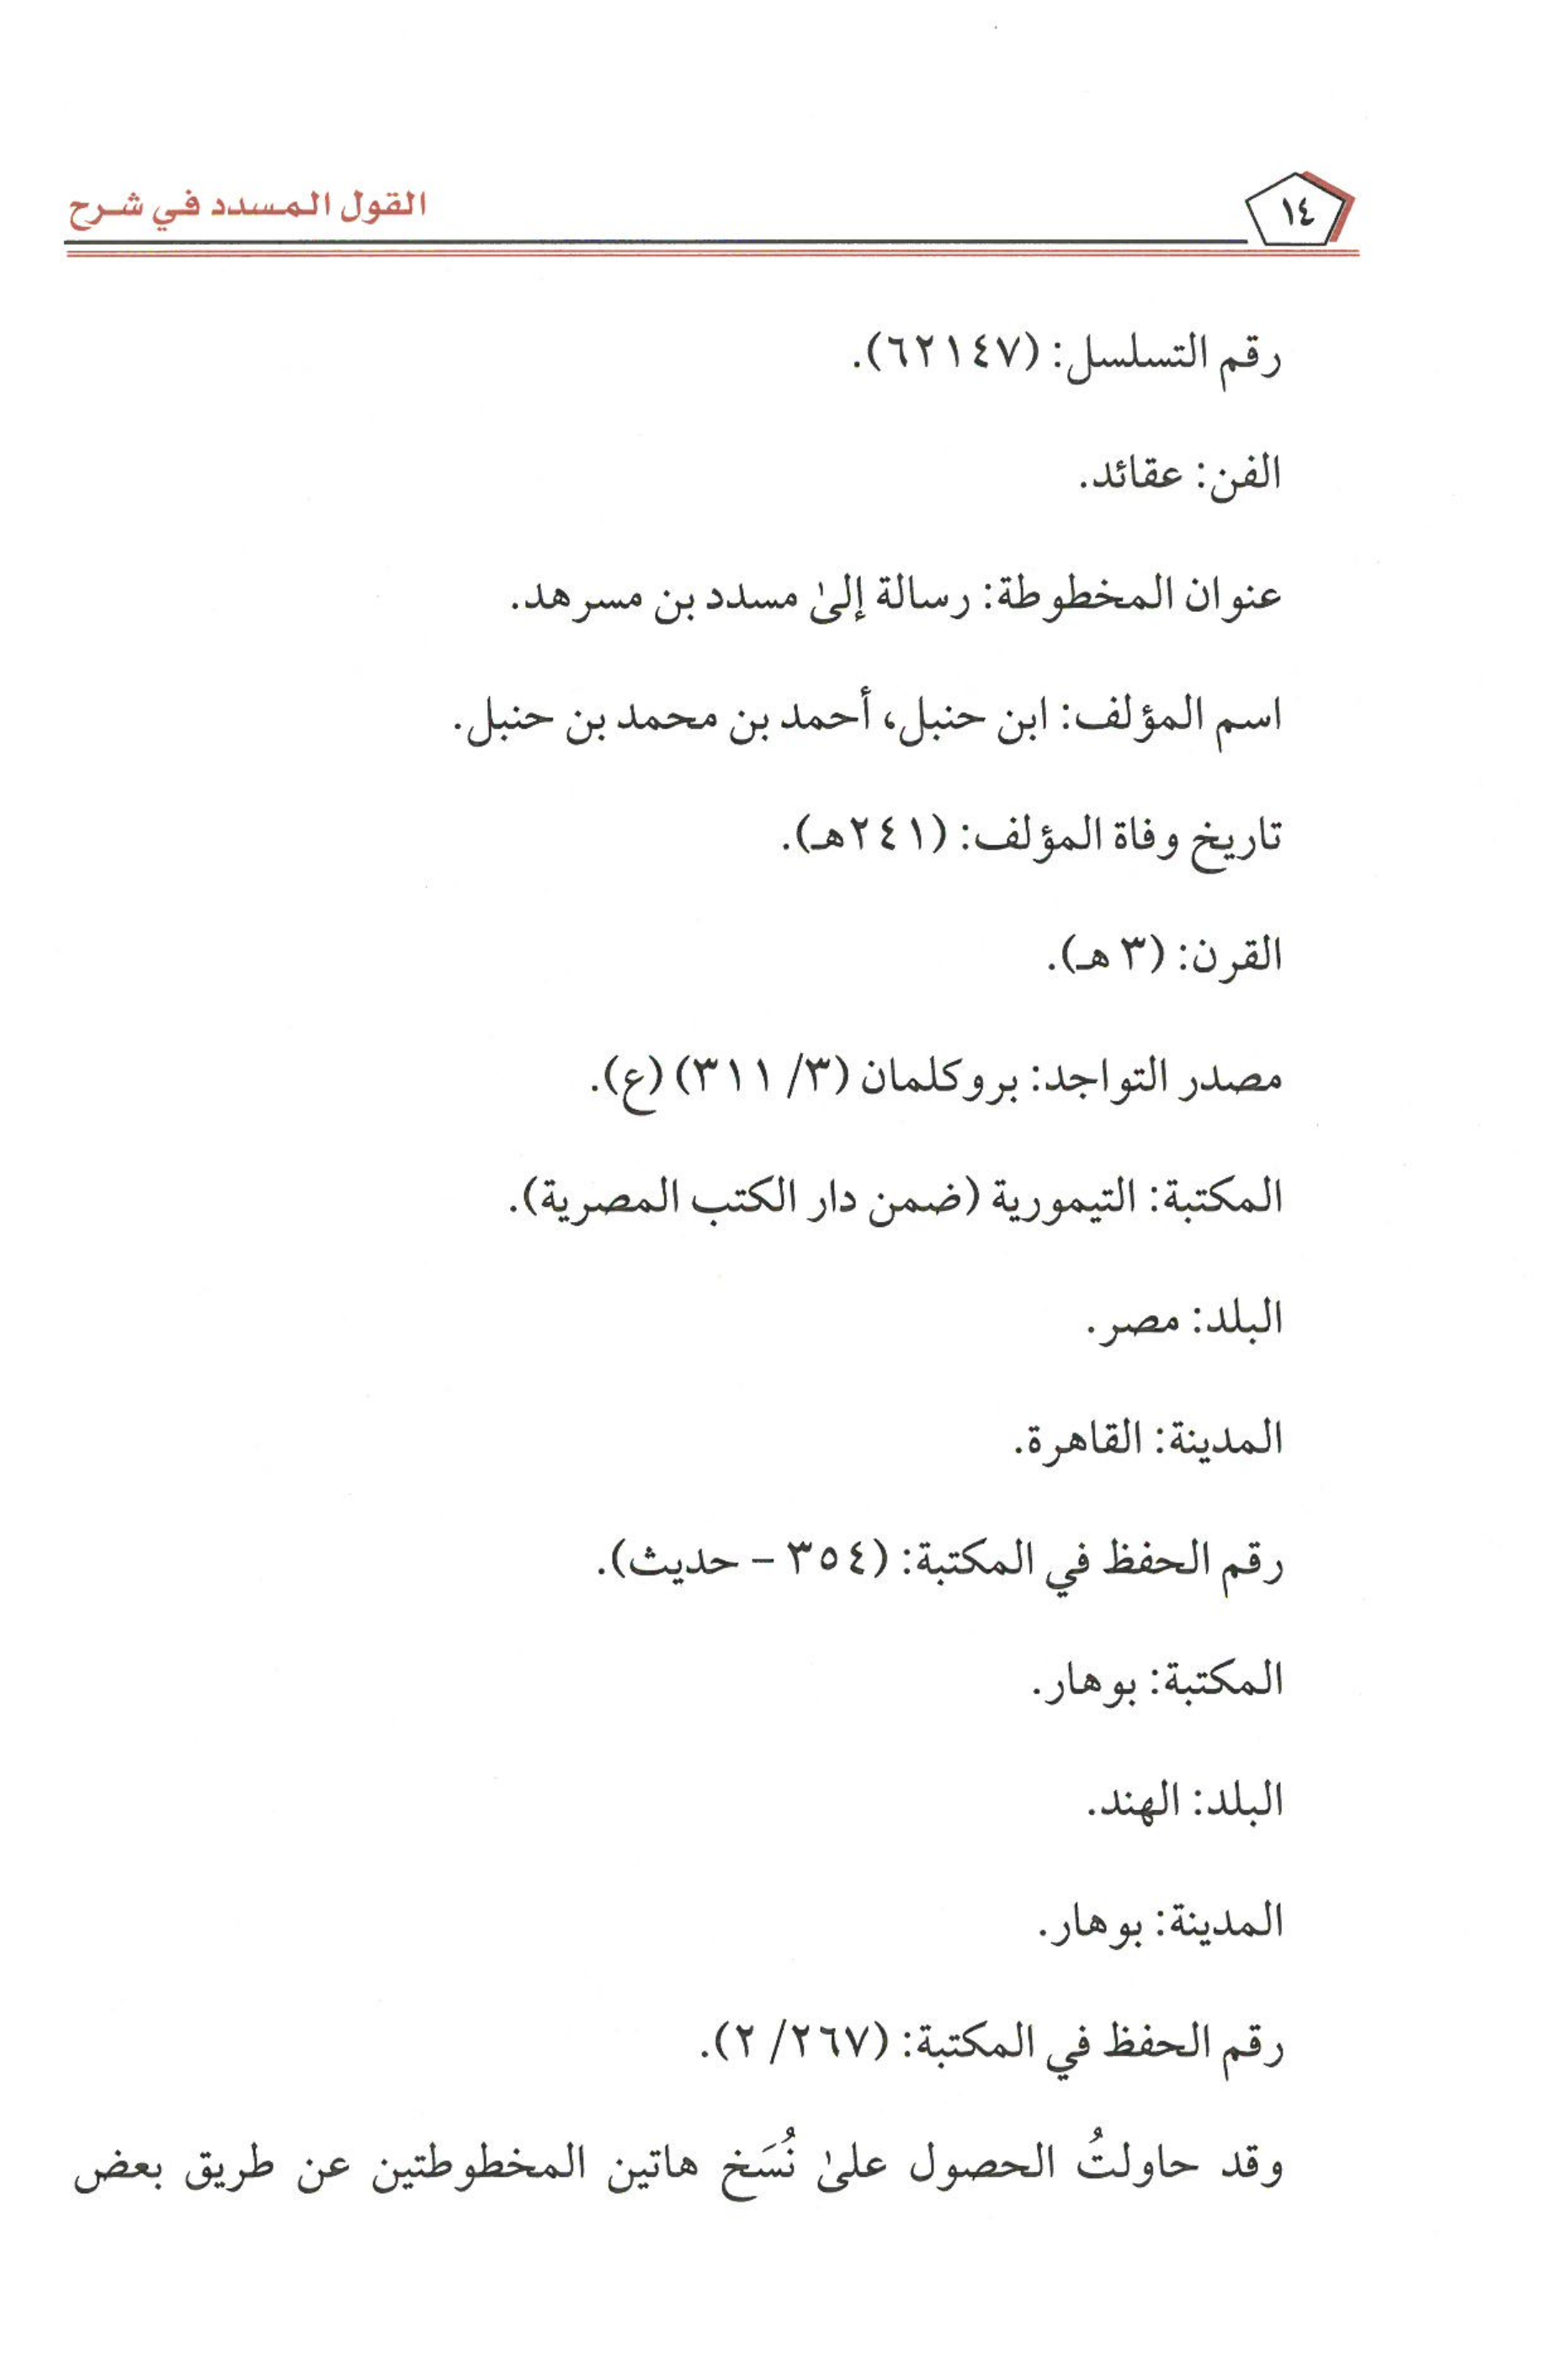 ١٤
القول المسدد في شرح
رقم التسلسل: (٦٢١٤٧).
الفن: عقائد.
عنوان المخطوطة: رسالة إلىٰ مسدد بن مسرهد.
اسم المؤلف: ابن حنبل، أحمد بن محمد بن حنبل.
تاريخ وفاة المؤلف: (٢٤١هـ).
القرن: (٣ هـ).
مصدر التواجد: بروكلمان (٣/ ٣١١) (ع).
المكتبة: التيمورية (ضمن دار الكتب المصرية).
البلد: مصر.
المدينة: القاهرة.
رقم الحفظ في المكتبة: (٣٥٤ – حديث).
المكتبة: بوهار.
البلد: الهند.
المدينة: بوهار.
رقم الحفظ في المكتبة: (٢٦٧/ ٢).
وقد حاولتُ الحصول علىٰ نُسَخ هاتين المخطوطتين عن طريق بعض